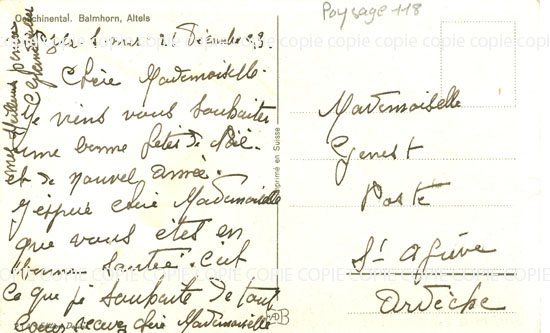 Oeschinental. Balmhorn, Altels
Paysage 118
Décembre
Chère Mademoiselle
Je viens vous souhaiter
une bonne fêtes de Noël
et de nouvel année.
J'espère chère Mademoiselle
que vous etes en
bonne Santée. C'est
Ce que je souhaite de tout
chère Mademoiselle
mes meilleures pensées
Imprimé en Suisse
Mademoiselle
Genest
Poste
St Agrève
Ardèche
COPIE COPIE COPIE COPIE COPIE COPIE COPIE